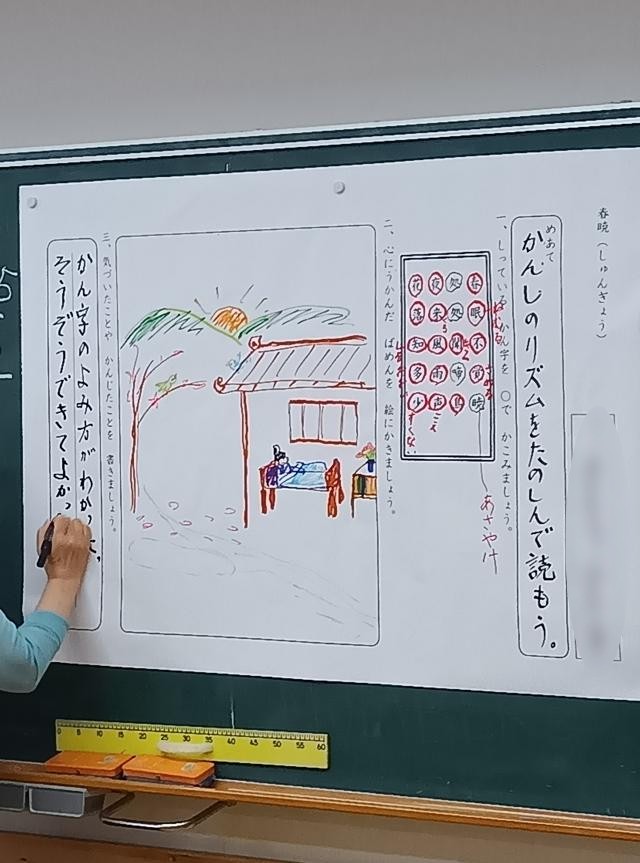 春暁(しゅんぎょう)
めあて
かんしのリズムをたのしんで読もう。
一、しっている かん字を ○で かこみましょう。
春眠不覚暁
処処聞啼鳥
夜来風雨声
花落知多少
あさやけ
こえ
二、心にうかんだ ばめんを 絵にかきましょう。
三、気づいたことや かんじたことを 書きましょう。
かん字のよみ方がわかった。
そうぞうできてよかっ
0 5 10 15 20 25 30 35 40 45 50 55 60